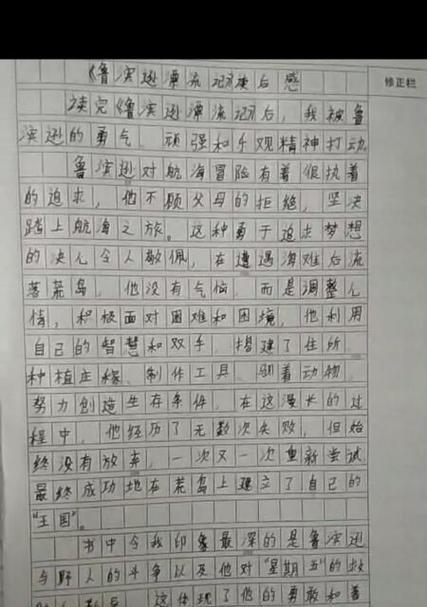 《鲁滨逊漂流记》读后感
修正栏
读完《鲁滨逊漂流记》后，我被鲁
滨逊的勇气、顽强和乐观精神打动
鲁滨逊对航海冒险有着很执着
的追求，他不顾父母的拒绝，坚决
踏上航海之旅。这种勇于追求梦想
的决心令人敬佩，在遭遇海难后流
落荒岛，他没有气馁，而是调整心
情，积极面对困难和困境，他利用
自己的智慧和双手，搭建了住所、
种植庄稼、制作工具、驯养动物，
努力创造生存条件，在这漫长的过
程中，他经历了无数次失败，但始
终没有放弃，一次又一次重新尝试
最终成功地在荒岛上建立了自己的
“王国”。
书中令我印象最深的是鲁滨逊
与野人的斗争以及他对“星期五”的救
这体现了他的勇敢和善